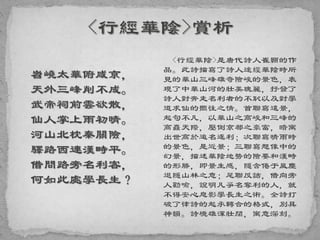 <行經華陰>賞析
岧嶢太華俯咸京，
天外三峰削不成。
武帝祠前雲欲散，
仙人掌上雨初晴。
河山北枕秦關險，
驛路西連漢畤平。
借問路旁名利客，
何如此處學長生？
<行經華陰>是唐代詩人崔顥的作
品。此詩描寫了詩人途經華陰時所
見的華山三峰雄奇險峻的景色，表
現了中華山河的壯美瑰麗，抒發了
詩人對奔走名利者的不以及對學
道求仙的嚮往之情。首聯寫遠景，
起句不凡，以華山之高峻和三峰的
高聳天際，壓倒京都之豪富，暗寓
出世高於追名逐利；次聯寫晴雨時
的景色，是近景；三聯寫想像中的
幻景，描述華陰地勢的險要和漢畤
的形勝，即景生感，隱含倦于風塵
退隱山林之意；尾聯反詰，借向旁
人勸喻，說明凡爭名奪利的人，就
不得安心息影學長生之術。全詩打
破了律詩的起承轉合的格式，別具
神韻。詩境雄渾壯闊，寓意深刻。